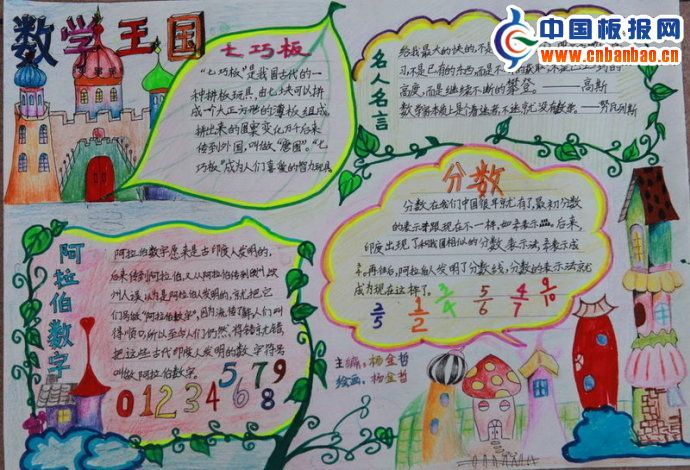 中国板报网
www.cnbanbao.cn
数学王国
七巧板
"七巧板"是我国古代的一
种拼板玩具,由七块可以拼
成一个大正方形的薄板组成。
拼出来的图案变化万千后来
传到外国,叫做"唐图"。"七
巧板"成为人们喜爱的智力玩具
名人名言
给我最大的快的,不是
高度,而是继续不断的攀登。——高斯
数学家本质上是个着迷者,不迷就没有数学。——努凡列斯
分数
分数在我们中国很早就有了,最初分数
的表示法跟现在不一样。
后来,
印度出现了和我国相似的分数表示法
再往后,阿拉伯人发明了分数线,分数的表示法就
成为现在这样了。
3/5 1/2 3/4 5/6 4/7 9/10
阿拉伯数字
阿拉伯数字原来是古印度人发明的,
后来传到阿拉伯,又从阿拉伯传到欧州,欧
州人误以为是阿拉伯人发明的,就把它
们叫做"阿拉伯数字",因为流传了
人们叫
得顺口,所以至今人们仍然,将错就错,
把这些古代印度人发明的数字符号
叫做阿拉伯数字。
0 1 2 3 4 5 6 7 8 9
主编:杨金哲
绘画:杨金哲